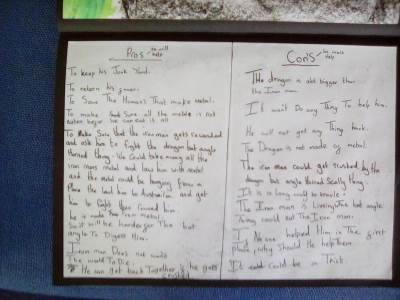 Pros
to will help
To keep his Junk Yard.
To return his
To Save The Humans That make metal.
To make Sure all the metal is not
eaten befor we can eat it all
To Make Sure that the iron man gets rewarded
and ask him to fight the dragon bat angle
thing. We could take away all the
iron mans metal and lour him with metal
and the metal could be hanging from a
Plane the lead him to Australia and get
him to fight
he is made from Iron metal
So it will be harder for The bat
angle To Digest Him.
Iron man Does not want
The world To Die.
He can get back Together if he gets
crushed
Con's
to not Help
The dragon is alot bigger than
the Iron man.
It won't Do any Thing To help him.
He will not get any Thing back.
The Dragon is not made of metal.
The iron man could get crushed by the
dragon bat angle Thing
It is a long way to
The Iron man is Living The bat angle
thing could eat The Iron man.
No one helped Him in The first
place, why Should He help Them
It could be a Trick.